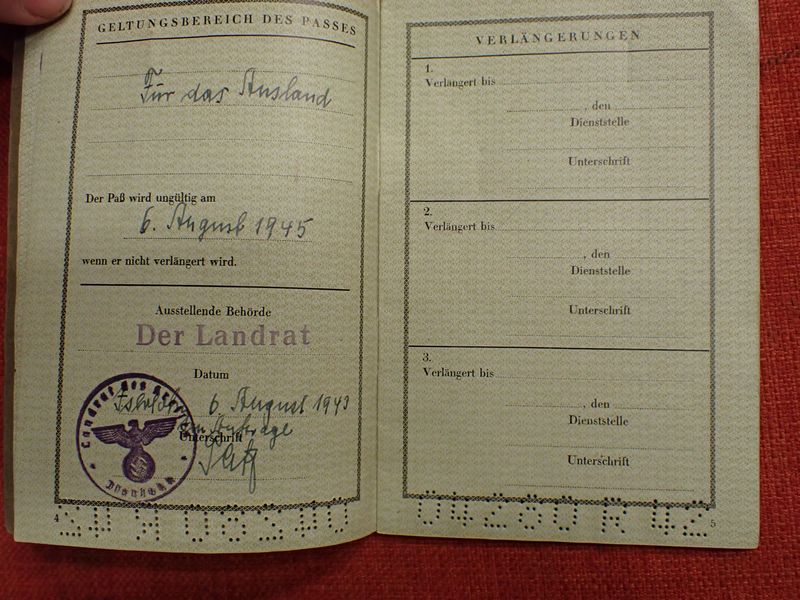 GELTUNGSBEREICH DES PASSES
Für das Ausland
Der Paß wird ungültig am
6. August 1945
wenn er nicht verlängert wird.
Ausstellende Behörde
Der Landrat
Datum
6. August 1943
Im Auftrage
Unterschrift
Landrat des
4
VERLÄNGERUNGEN
1.
Verlängert bis
, den
Dienststelle
Unterschrift
2.
Verlängert bis
, den
Dienststelle
Unterschrift
3.
Verlängert bis
, den
Dienststelle
Unterschrift
5